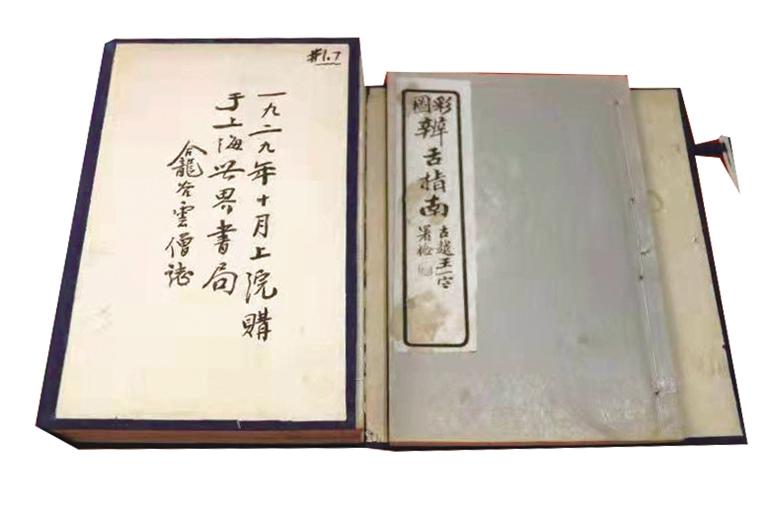 #1.7
一九二九年十月上浣購
于上海世界書局
雲僧誌
彩圖
辨舌指南
古越王一
署檢